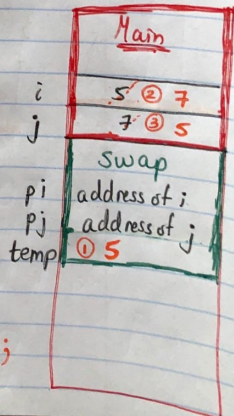 Main
i 5 ② 7
j 7 ③ 5
swap
pi address of i
pj address of j
temp ① 5
;